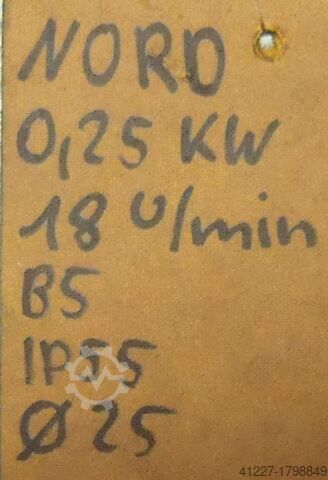 NORD
0,25 KW
18 U/min
B5
IP55
Ø 25
41227-1798849